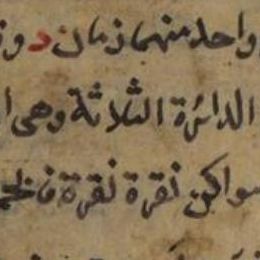 واحد منهما زمان د و
الدائرة الثلاثة وهى ا
سواكن نقرة نقرة فا